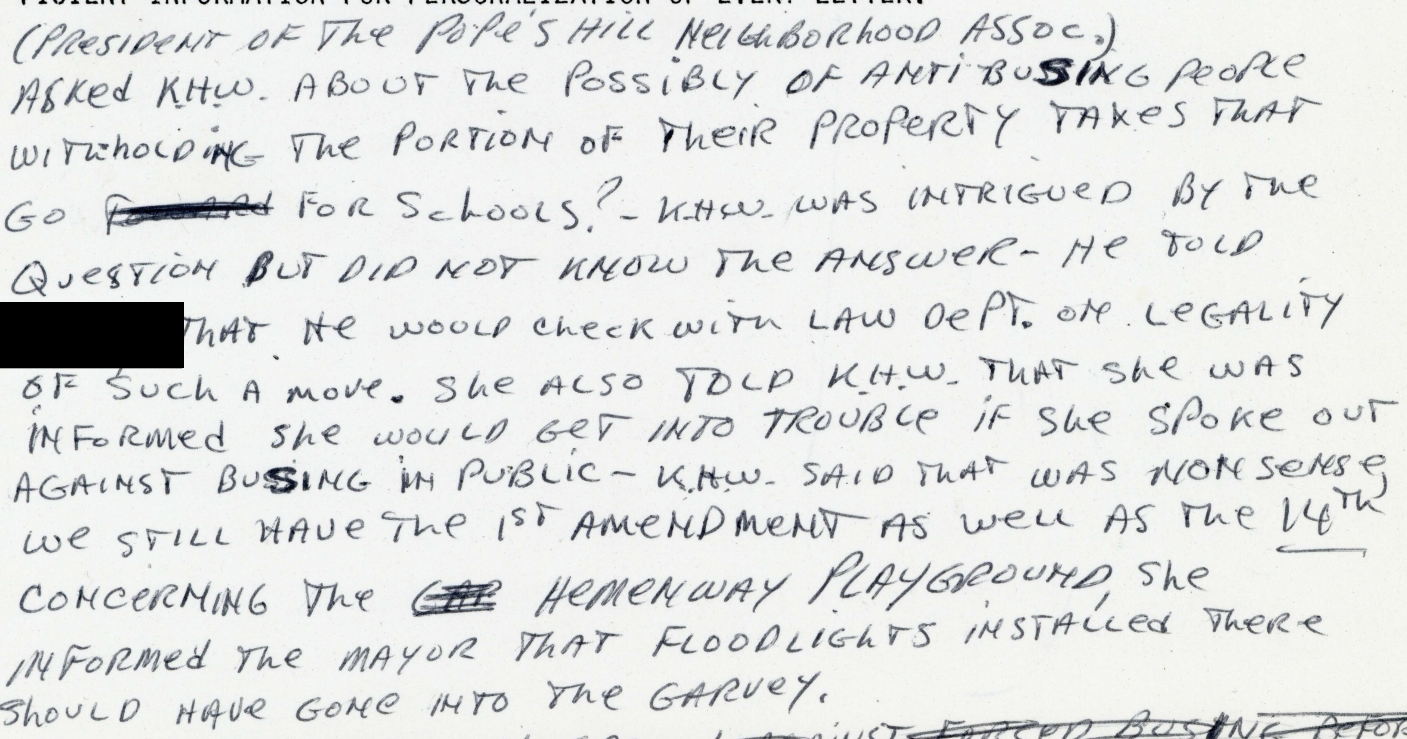 FICIENT INFORMATION FOR PERSONALIZATION OF EVENT LETTER.
(PRESIDENT OF THE POPE'S HILL NEIGHBORHOOD ASSOC.)
ASKED K.H.W. ABOUT THE POSSIBLY OF ANTI BUSING PEOPLE
WITHHOLDING THE PORTION OF THEIR PROPERTY TAXES THAT
GO FOR SCHOOLS? - K.H.W. WAS INTRIGUED BY THE
QUESTION BUT DID NOT KNOW THE ANSWER - HE TOLD
THAT HE WOULD CHECK WITH LAW DEPT. ON LEGALITY
OF SUCH A MOVE. SHE ALSO TOLD K.H.W. THAT SHE WAS
INFORMED SHE WOULD GET INTO TROUBLE IF SHE SPOKE OUT
AGAINST BUSING IN PUBLIC - K.H.W. SAID THAT WAS NONSENSE,
WE STILL HAVE THE 1ST AMENDMENT AS WELL AS THE 14TH
CONCERNING THE HEMENWAY PLAYGROUND, SHE
INFORMED THE MAYOR THAT FLOODLIGHTS INSTALLED THERE
SHOULD HAVE GONE INTO THE GARVEY.
FORCED BUSING